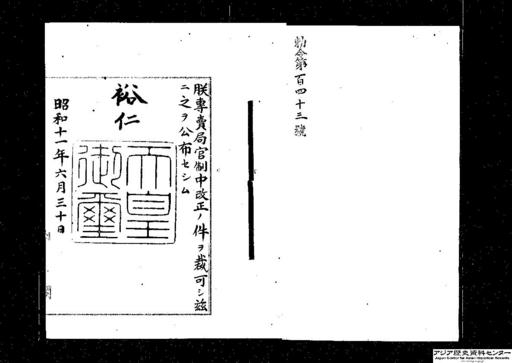 勅令第百四十三號
朕專賣局官制中改正ノ件ヲ裁可シ玆
ニ之ヲ公布セシム
裕仁
天皇御璽
昭和十一年六月三十日
アジア歴史資料センター
Japan Center for Asian Historical Records